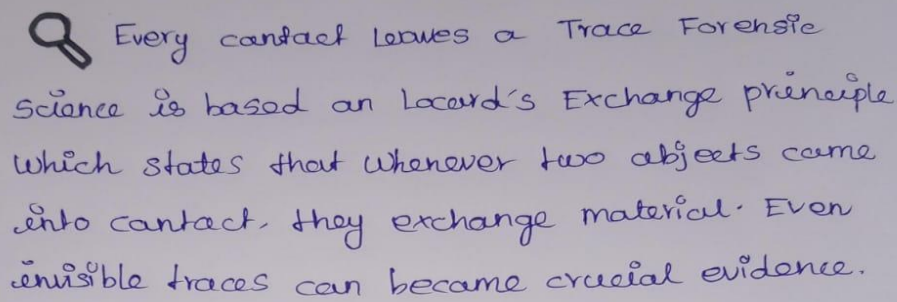 Every contact Leaves a Trace Forensic
science is based on Locard's Exchange principle
which states that whenever two objects come
into contact, they exchange material. Even
invisible traces can become crucial evidence.